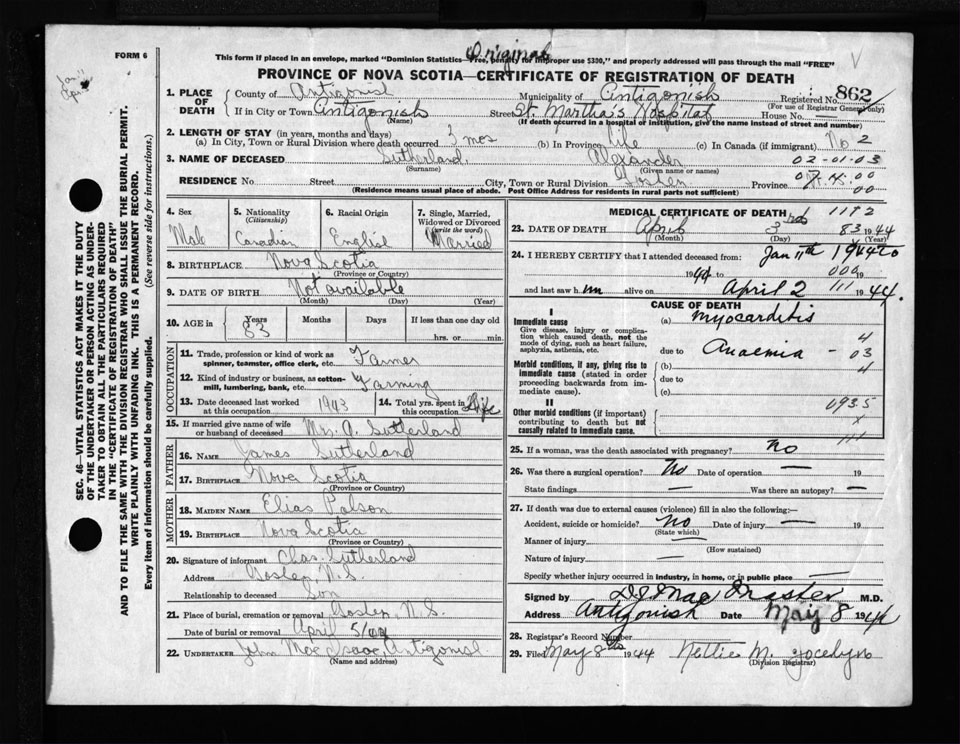 Original
FORM 6
This form if placed in an envelope, marked "Dominion Statistics—Free, penalty for improper use $330," and properly addressed will pass through the mail "FREE"
PROVINCE OF NOVA SCOTIA—CERTIFICATE OF REGISTRATION OF DEATH
Jan 11
1. PLACE OF DEATH
County of Antigonish Municipality of Antigonish Registered No. 862
(For use of Registrar General only)
If in City or Town Antigonish Street St. Martha's Hospital House No. —
(Name) (If death occurred in a hospital or institution, give the name instead of street and number)
2. LENGTH OF STAY (in years, months and days)
(a) In City, Town or Rural Division where death occurred 3 mos (b) In Province life (c) In Canada (if immigrant) No 2
3. NAME OF DECEASED Sutherland, Alexander 02-01-03
(Surname) (Given name or names)
RESIDENCE No Street City, Town or Rural Division Goshen Province N.S. 00
00
(Residence means usual place of abode. Post Office Address for residents in rural parts not sufficient)
4. Sex Male
5. Nationality (Citizenship) Canadian
6. Racial Origin English
7. Single, Married, Widowed or Divorced (write the word) Married
8. BIRTHPLACE Nova Scotia
(Province or Country)
9. DATE OF BIRTH Not available
(Month) (Day) (Year)
10. AGE in Years Months Days If less than one day old
83 hrs. or min.
OCCUPATION
11. Trade, profession or kind of work as spinner, teamster, office clerk, etc. Farmer
12. Kind of industry or business, as cotton-mill, lumbering, bank, etc. Farming
13. Date deceased last worked at this occupation 1943
14. Total yrs. spent in this occupation Life
15. If married give name of wife or husband of deceased Mrs. A. Sutherland
FATHER
16. NAME James Sutherland
17. BIRTHPLACE Nova Scotia
(Province or Country)
MOTHER
18. MAIDEN NAME Elias Polson
19. BIRTHPLACE Nova Scotia
(Province or Country)
20. Signature of informant Chas. Sutherland
Address Goshen, N.S.
Relationship to deceased Son
21. Place of burial, cremation or removal Goshen N.S.
Date of burial or removal April 5/44
22. UNDERTAKER John MacIsaac, Antigonish
(Name and address)
MEDICAL CERTIFICATE OF DEATH 1192
23. DATE OF DEATH April 3rd 83 1944
(Month) (Day) (Year)
24. I HEREBY CERTIFY that I attended deceased from: Jan 11th 1944 to
1944 to 000 19
and last saw him alive on April 2 111 1944.
CAUSE OF DEATH
I
Immediate cause
Give disease, injury or complication which caused death, not the mode of dying, such as heart failure, asphyxia, asthenia, etc.
(a) Myocarditis
due to Anaemia — 03
4
Morbid conditions, if any, giving rise to immediate cause (stated in order proceeding backwards from immediate cause).
(b)
due to
(c)
II
Other morbid conditions (if important) contributing to death but not causally related to immediate cause.
093.5
25. If a woman, was the death associated with pregnancy? no
26. Was there a surgical operation? No Date of operation — 19
State findings — Was there an autopsy? —
27. If death was due to external causes (violence) fill in also the following:—
Accident, suicide or homicide? no Date of injury — 19
(State which)
Manner of injury —
(How sustained)
Nature of injury —
Specify whether injury occurred in industry, in home, or in public place —
Signed by M.D.
Address Antigonish Date May 8 1944
28. Registrar's Record Number
29. Filed May 8th 1944 Nettie M. Jocelyn
(Division Registrar)
SEC. 46—VITAL STATISTICS ACT MAKES IT THE DUTY
OF THE UNDERTAKER OR PERSON ACTING AS UNDER-
TAKER TO OBTAIN ALL THE PARTICULARS REQUIRED
IN THE "CERTIFICATE OF REGISTRATION OF DEATH"
AND TO FILE THE SAME WITH THE DIVISION REGISTRAR WHO SHALL ISSUE THE BURIAL PERMIT.
WRITE PLAINLY WITH UNFADING INK. THIS IS A PERMANENT RECORD.
Every item of information should be carefully supplied. (See reverse side for instructions.)